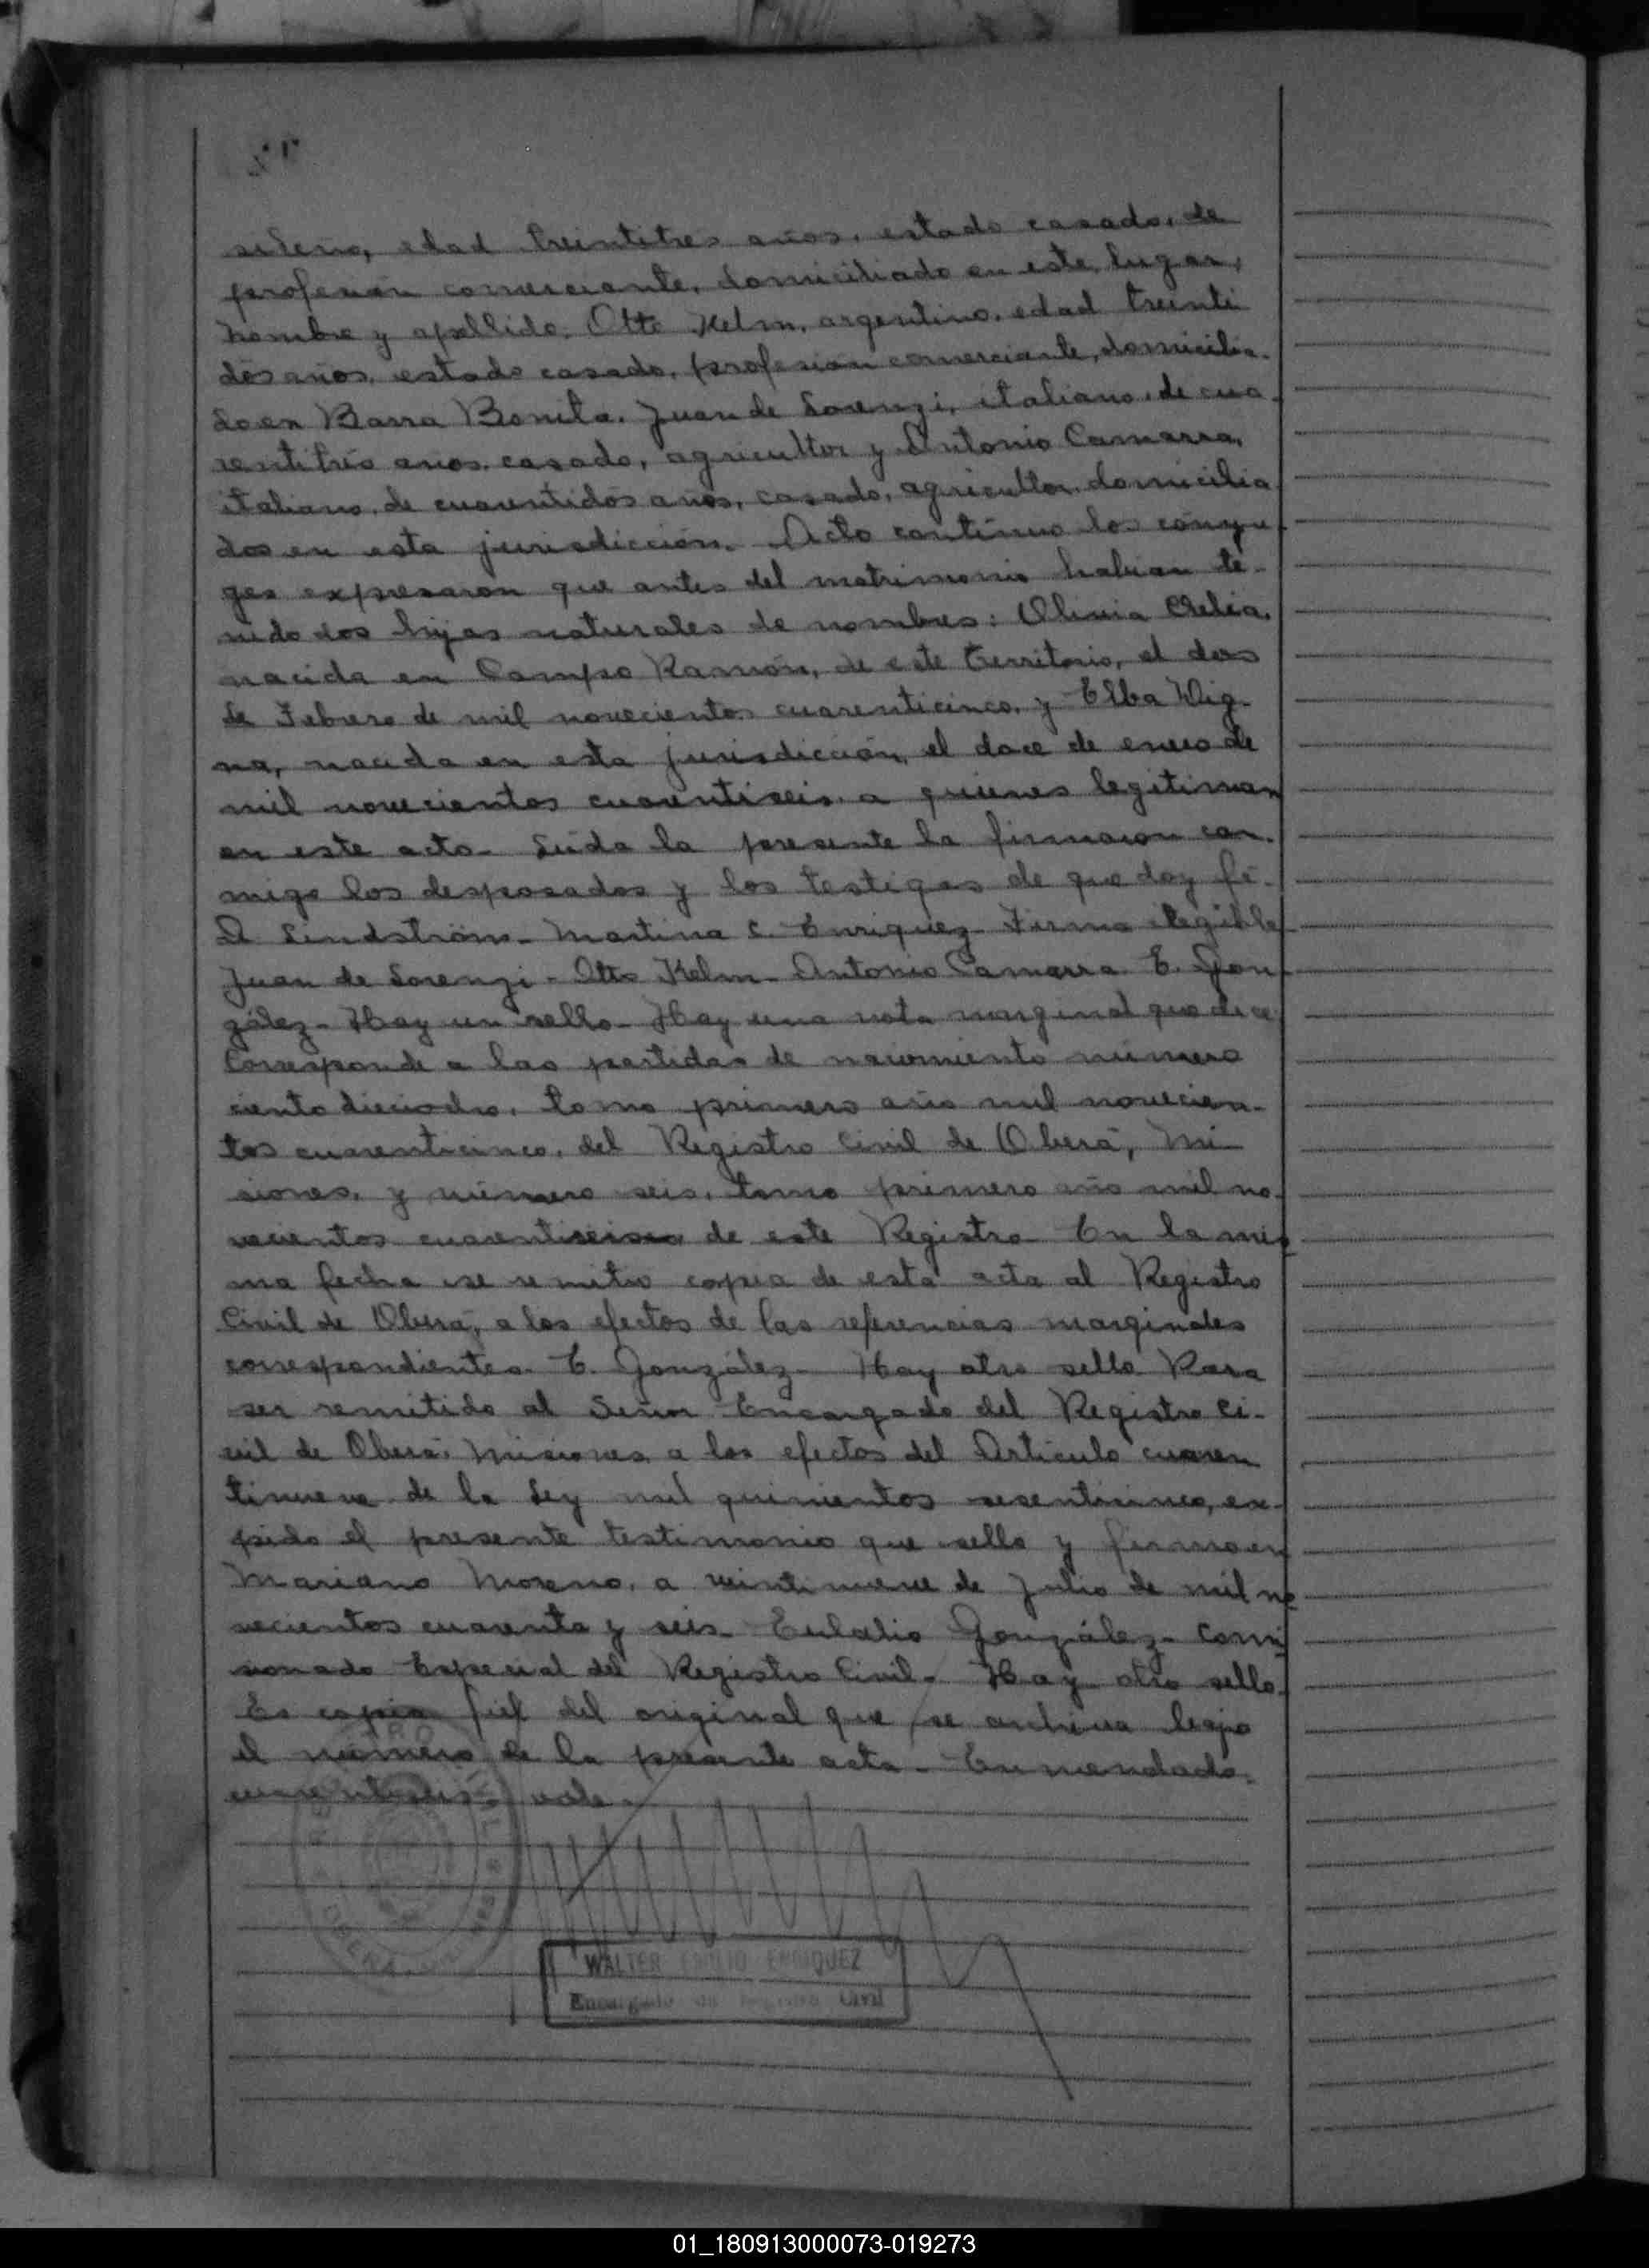 sileño, edad treintitres años, estado casado, de
profesión comerciante, domiciliado en este lugar,
nombre y apellido: Otto Kelm, argentino, edad treinti
dós años, estado casado, profesión comerciante, domicilia-
do en Barra Bonita. Juan de Lorenzi, italiano, de cua-
rentitrés años, casado, agricultor y Antonio Camarra,
italiano, de cuarentidós años, casado, agricultor, domicilia
dos en esta jurisdicción. Acto contínuo los cónyu-
ges expresaron que antes del matrimonio habian te-
nido dos hijas naturales de nombres: Olivia Clelia,
nacida en Campo Ramón, de este territorio, el dos
de Febrero de mil novecientos cuarenticinco, y Elba Dig-
na, nacida en esta jurisdicción, el doce de enero de
mil novecientos cuarentiseis a quienes legitiman
en este acto. Leída la presente la firmaron con-
migo los desposados y los testigos de que doy fé.
A Lindström - Martina C. Enriquez - Firma ilegible
Juan de Lorenzi - Otto Kelm - Antonio Camarra E. Gon
zález - Hay un sello - Hay una nota marginal que dice
Corresponde a las partidas de nacimiento número
ciento dieciocho, tomo primero año mil novecien-
tos cuarenticinco, del Registro Civil de Oberá, Mi
siones, y número seis, tomo primero año mil no-
vecientos cuarentiseis de este Registro En la mis
ma fecha se remitió copia de esta acta al Registro
Civil de Oberá, a los efectos de las referencias marginales
correspondientes. E. González - Hay otro sello Para
ser remitido al Señor Encargado del Registro Ci-
vil de Oberá, Misiones a los efectos del Artículo cuaren
tinueve de la Ley mil quinientos sesenticinco, ex-
pido el presente testimonio que sello y firmo en
Mariano Moreno, a veintinueve de Julio de mil no
vecientos cuarenta y seis - Eulalio González - Comi
sionado Especial del Registro Civil - Hay otro sello.
Es copia fiel del original que se archiva bajo
el número de la presente acta - Enmendado:
cuarentiseis: vale.
WALTER EMILIO ENRIQUEZ
Encargado de Registro Civil
01_180913000073-019273